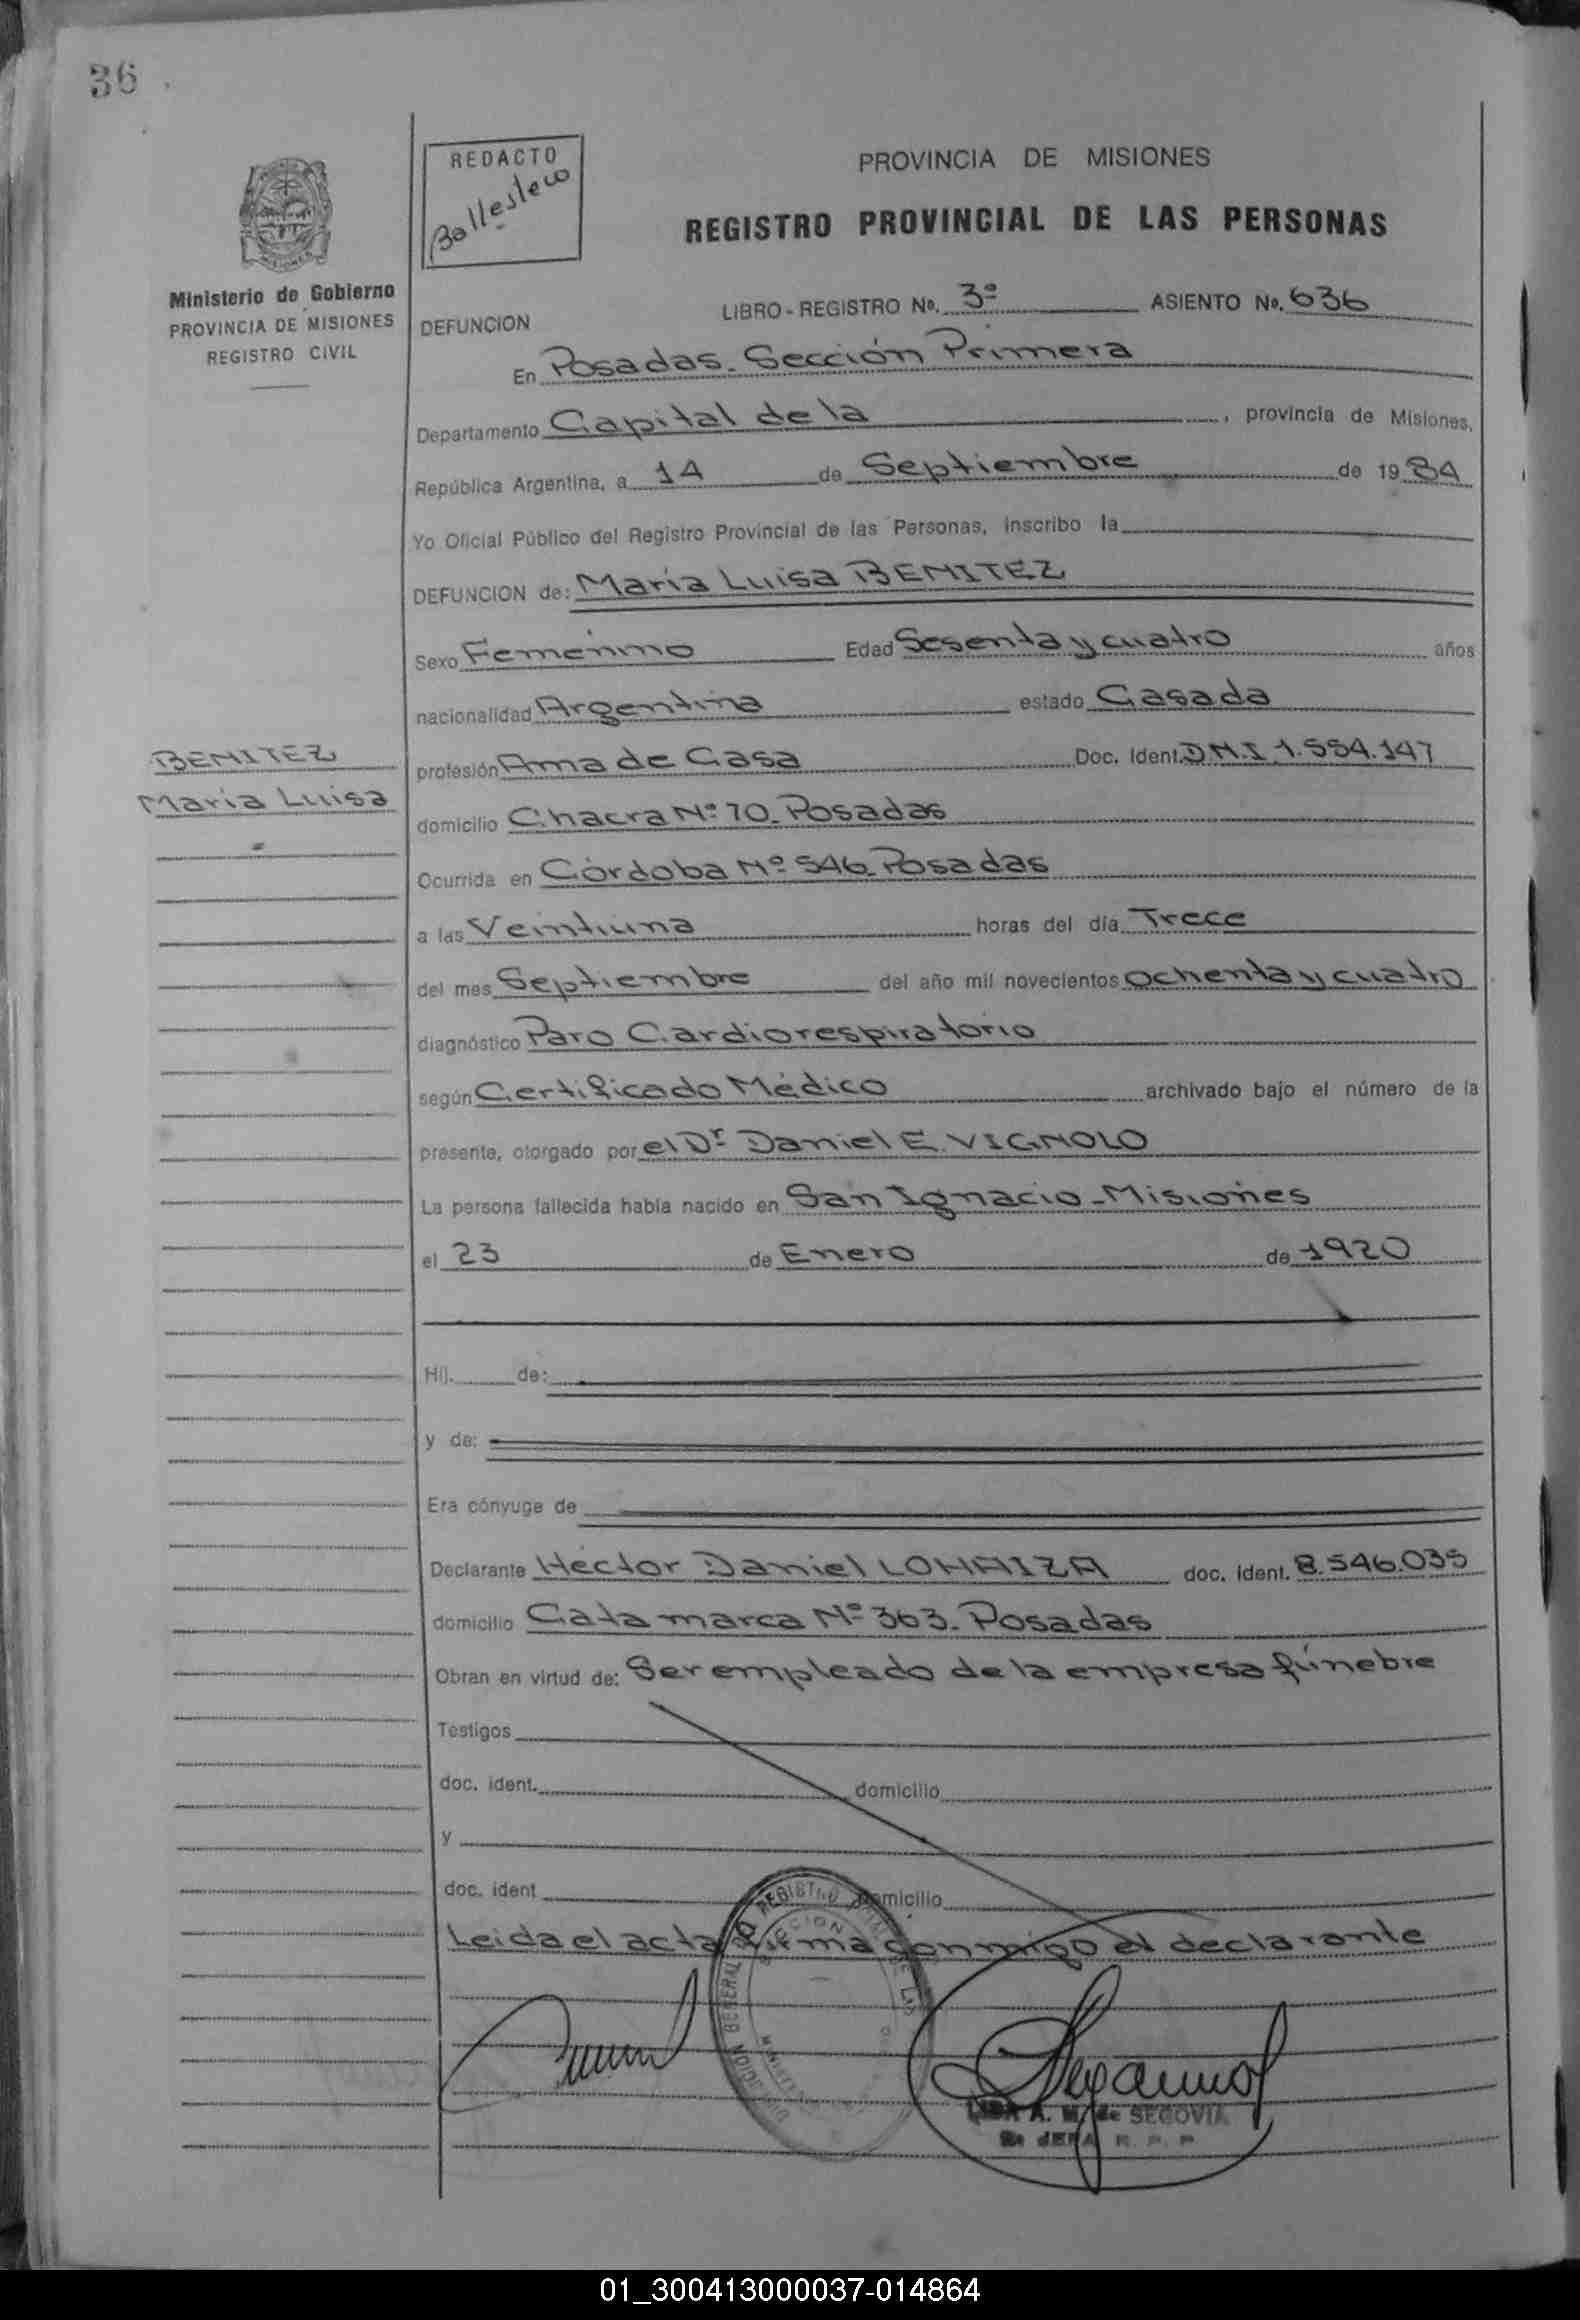 36
REDACTO
Ballestero
PROVINCIA DE MISIONES
REGISTRO PROVINCIAL DE LAS PERSONAS
Ministerio de Gobierno
PROVINCIA DE MISIONES
REGISTRO CIVIL
DEFUNCION LIBRO - REGISTRO No. 3º ASIENTO No. 636
En Posadas. Sección Primera
Departamento Capital de la , provincia de Misiones,
República Argentina, a 14 de Septiembre de 1984
Yo Oficial Público del Registro Provincial de las Personas, inscribo la
DEFUNCION de: María Luisa BENITEZ
Sexo Femenino Edad Sesenta y cuatro años
nacionalidad Argentina estado Casada
BENITEZ
María Luisa
profesión Ama de Casa Doc. Ident. D.N.I 1.554.147
domicilio Chacra Nº 70. Posadas
Ocurrida en Córdoba Nº 546 Posadas
a las Veintiuna horas del día Trece
del mes Septiembre del año mil novecientos ochenta y cuatro
diagnóstico Paro Cardiorespiratorio
según Certificado Médico archivado bajo el número de la
presente, otorgado por el Dr Daniel E. VIGNOLO
La persona fallecida había nacido en San Ignacio - Misiones
el 23 de Enero de 1920
Hij. de:
y de:
Era cónyuge de
Declarante Héctor Daniel LOHAIZA doc. ident. 8.546.035
domicilio Catamarca Nº 363. Posadas
Obran en virtud de: Ser empleado de la empresa fúnebre
Testigos
doc. ident. domicilio
y
doc. ident domicilio
Leida el acta firma conmigo el declarante
A. M. de SEGOVIA
JEFA R. P. P
01_300413000037-014864